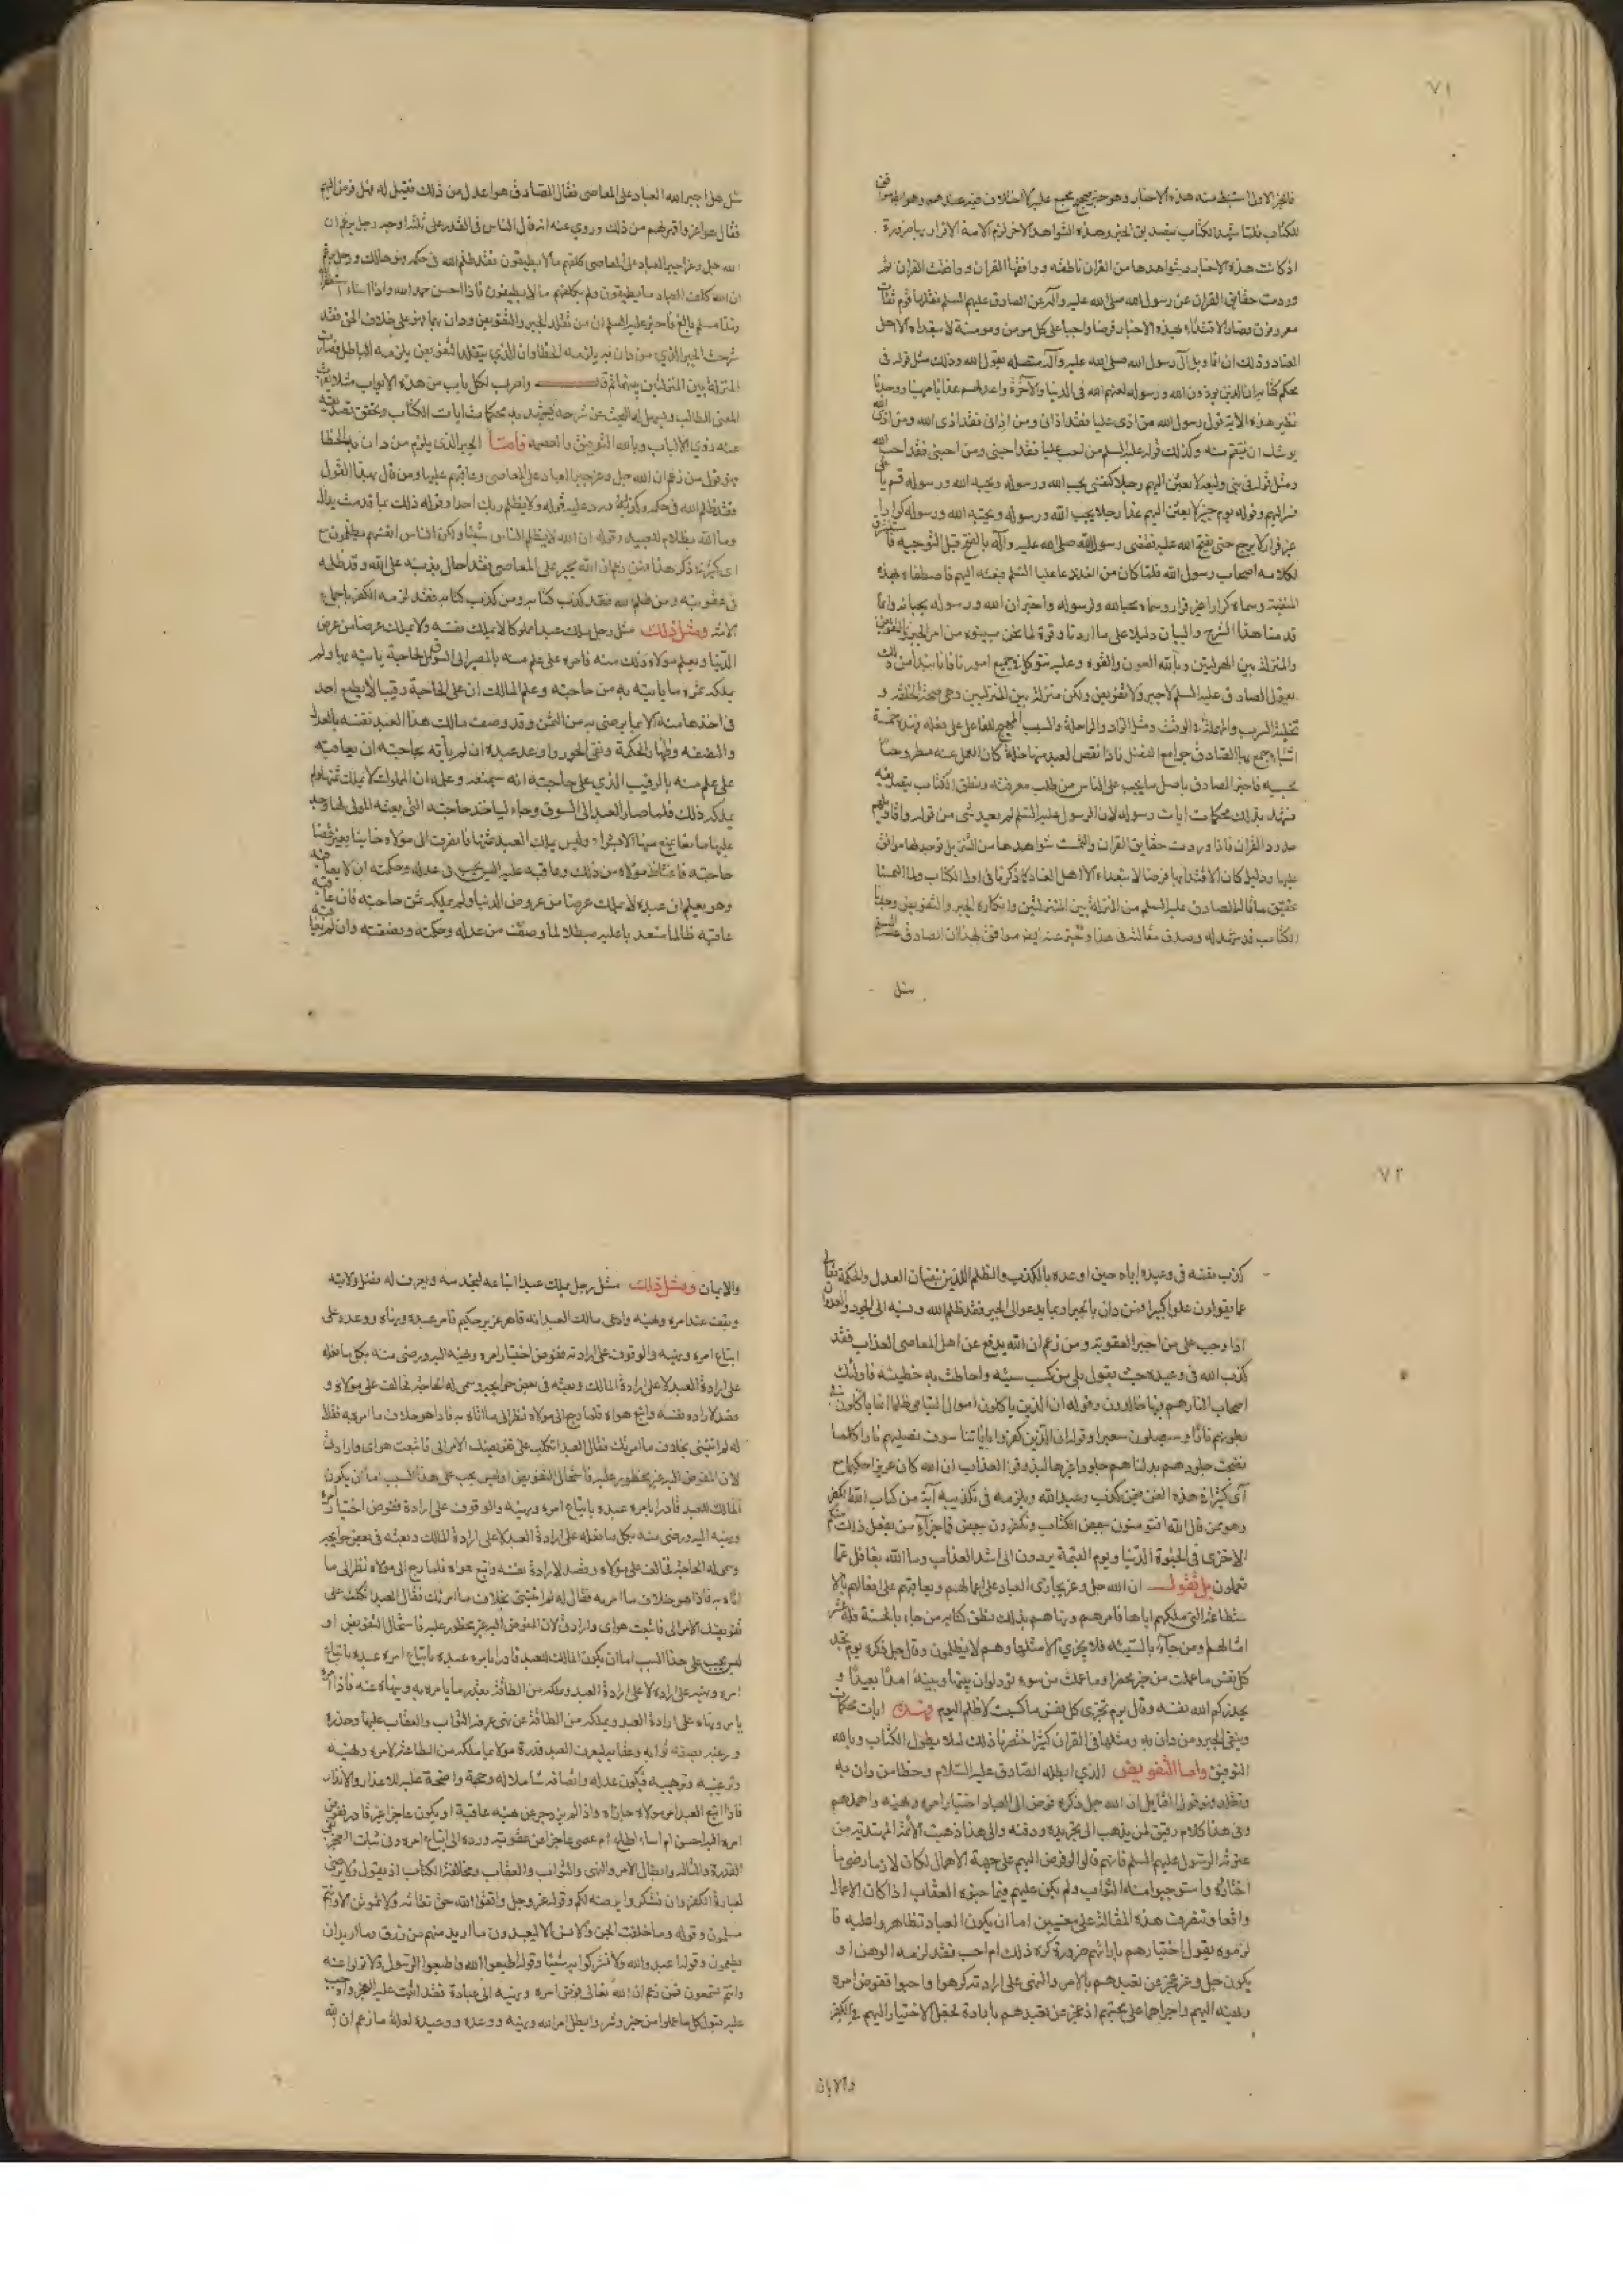 ٧١
فالخبر الاول استنبط منه هذه الاخبار وهو خبر صحيح مجمع عليه لا اختلاف فيه عندهم وهو ايضا موافق
للكتاب فلما شهد الكتاب بتصديق الخبر وهذه الشواهد الاخر لزم الامة الاقرار بها ضرورة
اذ كانت هذه الاخبار وشواهدها من القران ناطقة ووافقها القران ووافقت القران ثم
وردت حقايق القران عن رسول الله صلى الله عليه وآله عن الصادق عليهم السلم نقلها قوم ثقات
معروفون فصار الاقتداء بهذه الاخبار فرضا واجبا على كل مومن ومومنة لا يتعداه الا اهل
العناد وذلك ان اقاويل آل رسول الله صلى الله عليه وآله متصلة بقول الله وذلك مثل قوله فى
محكم كتابه ان الذين يوذون الله ورسوله لعنهم الله فى الدنيا والآخرة واعد لهم عذابا مهينا ووجدنا
نظير هذه الآية قول رسول الله من اذى عليا فقد اذانى ومن اذانى فقد اذى الله ومن اذى الله
يوشك ان ينتقم منه وكذلك قوله عليه السلم من احب عليا فقد احبنى ومن احبنى فقد احب الله
ومثل قوله فى بنى وليعة لابعثن اليهم رجلا كنفسى يحب الله ورسوله ويحبه الله ورسوله قم يا على
فسر اليهم وقوله يوم خيبر لابعثن اليهم غدا رجلا يحب الله ورسوله ويحبه الله ورسوله كرارا
غير فرار لا يرجع حتى يفتح الله عليه فقضى رسول الله صلى الله عليه وآله بالفتح قبل التوجيه فاستشرف
لكلامه اصحاب رسول الله فلما كان من الغد دعا عليا السلم فبعثه اليهم فاصطفاه بهذه
المنقبة وسماه كرارا غير فرار وسماه محبا لله ولرسوله واخبر ان الله ورسوله يحبانه وانما
قدمنا هذا الشرح والبيان دليلا على ما اردنا وقوة لما نحن مبينوه من امر الجبر والتفويض
والمنزلة بين المنزلتين وبالله العون والقوة وعليه نتوكل فى جميع امورنا فانا نبدأ من ذلك
بقول الصادق عليه السلم لا جبر ولا تفويض ولكن منزلة بين المنزلتين وهى صحة الخلقة و
تخلية السرب والمهلة فى الوقت ومثل الزاد والراحلة والسبب المهيج للفاعل على فعله فهذه خمسة
اشياء جمع بها الصادق جوامع الفضل فاذا نقص العبد منها خلة كان العمل عنه مطروحا
بحسبه فاخبر الصادق باصل ما يجب على الناس من طلب معرفته ونطق الكتاب بتصديقه
فشهد بذلك محكمات ايات رسوله لان الرسول عليه السلم لم يعد شى من قوله واقاويلهم
حدود القران فاذا وردت حقايق القران والتمست شواهدها من التنزيل فوجد لها موافقا
عليها دليلا كان الاقتداء بها فرضا لا يتعداه الا اهل العناد كما ذكرنا فى اول الكتاب ولما التمسنا
تحقيق ما قاله الصادق عليه السلم من المنزلة بين المنزلتين وانكاره الجبر والتفويض وجدنا
الكتاب قد شهد له وصدق مقالته فى هذا وخبر عنه ايضا موافق لهذا ان الصادق عليه السلم
سئل
سئل هل اجبر الله العباد على المعاصى فقال الصادق هو اعدل من ذلك فقيل له فهل فوض اليهم
فقال هو اعز واقهر لهم من ذلك وروى عنه انه قال الناس فى القدر على ثلثة اوجه رجل يزعم ان
الله جل وعز اجبر العباد على المعاصى كلفهم ما لا يطيقون فقد ظلم الله فى حكمه فهو هالك ورجل يزعم
ان الله كلف العباد ما يطيقون ولم يكلفهم ما لا يطيقون فاذا احسن حمد الله واذا اساء استغفر الله
فهذا مسلم بالغ فاخبر عليه السلم ان من تقلد الجبر والتفويض ودان بهما فهو على خلاف الحق فقد
شرحت الجبر الذي من دان فيه يلزمه الخطا وان الذي يتقلد التفويض يلزمه الباطل فصارت
المنزلة بين المنزلتين بينهما ثم قال واضرب لكل باب من هذه الابواب مثلا يقرب
المعنى للطالب ويسهل له البحث عن شرحه فيشهد به محكمات ايات الكتاب وتحقق تصديقه
عند ذوى الالباب وبالله التوفيق والعصمة فاما الجبر الذى يلزم من دان به الخطا
فهو قول من زعم ان الله جل وعز جبر العباد على المعاصى وعاقبهم عليها ومن قال بهذا القول
فقد ظلم الله فى حكمه وكذبه ورد عليه قوله ولا يظلم ربك احدا وقوله ذلك بما قدمت يداك
وما الله بظلام للعبيد وقوله ان الله لا يظلم الناس شيئا ولكن الناس انفسهم يظلمون مع
اى كثيرة ذكر هذا فمن زعم ان الله يجبر على المعاصى فقد احال بذنبه على الله وقد ظلمه
فى عقوبته ومن ظلم الله فقد كذب كتابه ومن كذب كتابه فقد لزمه الكفر باجماع
الامة ومثل ذلك مثل رجل ملك عبدا مملوكا لا يملك نفسه ولا يملك عرضا من عرض
الدنيا ويعلم مولاه ذلك منه فامره على علم منه بالمصير الى السوق لحاجة ياتيه بها ولم
يملكه ثمن ما ياتيه به من حاجته وعلم المالك ان على الحاجة رقيبا لا يطمع احد
فى اخذها منه الا بما يرضى به من الثمن وقد وصف مالك هذا العبد نفسه بالعدل
والنصفة واظهار الحكمة ونفى الجور واوعد عبده ان لم يأته بحاجته ان يعاقبه
على علم منه بالرقيب الذي على حاجته انه سيمنعه وعلم ان المملوك لا يملك ثمنها ولم
يملكه ذلك فلما صار العبد الى السوق وجاء لياخذ حاجته التى بعثه المولى لها وجد
عليها مانعا يمنع منها الا بشراء وليس يملك العبد ثمنها فانصرف الى مولاه خايبا بغير قضاء
حاجته فاغتاظ مولاه من ذلك وعاقبه عليه اليس يجب فى عدله وحكمته ان لا يعاقبه
وهو يعلم ان عبده لا يملك عرضا من عروض الدنيا ولم يملكه ثمن حاجته فان عاقبه
عاقبه ظالما متعديا عليه مبطلا لما وصف من عدله وحكمته ونصفته وان لم يعاقبه
٧٢
كذب نفسه فى وعيده اياه حين اوعده بالكذب والظلم اللذين ينفيان العدل والحكمة تعالى
عما يقولون علوا كبيرا فمن دان بالجبر او بما يدعو الى الجبر فقد ظلم الله ونسبه الى الجور والعدوان
اذ اوجب على من اجبر العقوبة ومن زعم ان الله يدفع عن اهل المعاصى العذاب فقد
كذب الله فى وعيده حيث يقول بلى من كسب سيئة واحاطت به خطيئته فاولئك
اصحاب النار هم فيها خالدون وقوله ان الذين ياكلون اموال اليتامى ظلما انما ياكلون فى
بطونهم نارا وسيصلون سعيرا وقوله ان الذين كفروا باياتنا سوف نصليهم نارا كلما
نضجت جلودهم بدلناهم جلودا غيرها ليذوقوا العذاب ان الله كان عزيزا حكيما مع
آى كثيرة فى هذا الفن فمن كذب وعيد الله ويلزمه فى تكذيبه آية من كتاب الله الكفر
وهو ممن قال الله افتومنون ببعض الكتاب وتكفرون ببعض فما جزآء من يفعل ذلك منكم
الا خزى فى الحيوة الدنيا ويوم القيمة يردون الى اشد العذاب وما الله بغافل عما
تعملون بل نقول ان الله جل وعز يجازى العباد على اعمالهم ويعاقبهم على افعالهم بالا
ستطاعة التى ملكهم اياها فامرهم ونهاهم بذلك ونطق كتابه من جاء بالحسنة فله عشر
امثالها ومن جآء بالسيئة فلا يجزى الا مثلها وهم لا يظلمون وقال جل ذكره يوم تجد
كل نفس ما عملت من خير محضرا وما عملت من سوء تود لو ان بينها وبينه امدا بعيدا و
يحذركم الله نفسه وقال يوم تجزى كل نفس ما كسبت لا ظلم اليوم فهذه ايات محكمات
وينفى الجبر ومن دان به ومثلها فى القران كثير اختصرنا ذلك لئلا يطول الكتاب وبالله
التوفيق واما التفويض الذي ابطله الصادق عليه السلام وخطأ من دان به
وتقلده فهو قول القايل ان الله جل ذكره فوض الى العباد اختيار امره ونهيه واهملهم
وفى هذا كلام دقيق لمن يذهب الى تحريره ودقته والى هذا ذهبت الائمة المهتدية من
عترة الرسول عليهم السلم فانهم قالوا لو فوض اليهم على جهة الاهمال لكان لازما رضى ما
اختاره واستوجبوا منه الثواب ولم يكن عليهم فيما جنوه العقاب اذا كان الاهمال
واقعا وتنصرف هذه المقالة على معنيين اما ان يكون العباد تظاهروا عليه فا
لزموه بقول اختيارهم بارائهم ضرورة كره ذلك ام احب فقد لزمه الوهن او
يكون جل وعز عجز عن تعبدهم بالامر والنهى على ارادته كرهوا واحبوا ففوض امره
ونهيه اليهم واجراهما على محبتهم اذ عجز عن تعبدهم بارادة لجعل الاختيار اليهم فى الكفر
والايمان
والايمان ومثل ذلك مثل رجل ملك عبدا ابتاعه ليخدمه ويعرف له فضل ولايته
ويقف عند امره ونهيه وادعى مالك العبد انه قاهر عزيز حكيم فامر عبده ونهاه ووعده على
اتباع امره ونهيه والوقوف على ارادته ففوض اختيار امره ونهيه اليه ورضى منه بكل ما فعله
على ارادة العبد لا على ارادة المالك وبعثه فى بعض حوايجه وسمى له الحاجة فخالف على مولاه و
قصد لارادة نفسه واتبع هواه فلما رجع الى مولاه نظر الى ما اتاه به فاذا هو خلاف ما امره به فقال
له لم اتيتنى بخلاف ما امرتك فقال العبد اتكلت على تفويضك الامر الى فاتبعت هواى وارادتى
لان المفوض اليه غير محظور عليه فاستحال التفويض اوليس يجب على هذا السبب اما ان يكون
المالك للعبد قادرا يامر عبده باتباع امره ونهيه والوقوف على ارادة ففوض اختيار امره
ونهيه اليه ورضى منه بكل ما فعله على ارادة العبد لا على ارادة المالك وبعثه فى بعض حوايجه
وسمى له الحاجة فخالف على مولاه وقصد لارادة نفسه واتبع هواه فلما رجع الى مولاه نظر الى ما
اتاه به فاذا هو خلاف ما امر به فقال له لم اتيتنى بخلاف ما امرتك فقال العبد اتكلت على
تفويضك الامر الى فاتبعت هواى وارادتى لان المفوض اليه غير محظور عليه فاستحال التفويض او
ليس يجب على هذا السبب اما ان يكون المالك للعبد قادرا يامره عبده باتباع امره عبده باتباع
امره ونهيه على ارادة لا على ارادة العبد ويملكه من الطاقة بقدر ما يامره به وينهاه عنه فاذا امره
يامر ونهاه على ارادة العبد ويملكه من الطاقة عن نهى عرفه الثواب والعقاب عليها وحذره
ورغبه بصفة ثوابه وعقابه ليعرف العبد قدرة مولاه بما ملكه من الطاقة لامره ونهيه
وترغيبه وترهيبه فيكون عدله وانصافه شاملا له وحجة واضحة عليه للاعذار والانذار
فاذا اتبع العبد امر مولاه جازاه واذا لم يزدجر عن نهيه عاقبة او يكون عاجزا غير قادر ففوض
امره اليه احسن ام اساء اطاع ام عصى عاجزا عن عقوبته ورده الى اتباع امره وفى اثبات العجز نفى
القدرة والتاله وابطال الامر والنهى والثواب والعقاب ومخالفة الكتاب اذ يقول ولا يرضى
لعباده الكفر وان تشكروا يرضه لكم وقوله عز وجل واتقوا الله حق تقاته ولا تموتن الا وانتم
مسلمون وقوله وما خلقت الجن والانس الا ليعبدون ما اريد منهم من رزق وما اريد ان
يطعمون وقوله اعبدوا الله ولا تشركوا به شيئا وقوله اطيعوا الله واطيعوا الرسول ولا تولوا عنه
وانتم تسمعون فمن زعم ان الله تعالى فوض امره ونهيه الى عباده فقد اثبت عليه العجز واوجب
عليه قبول كل ما عملوا من خير وشر وابطل امر الله ونهيه ووعده ووعيده لعلة ما زعم ان الله